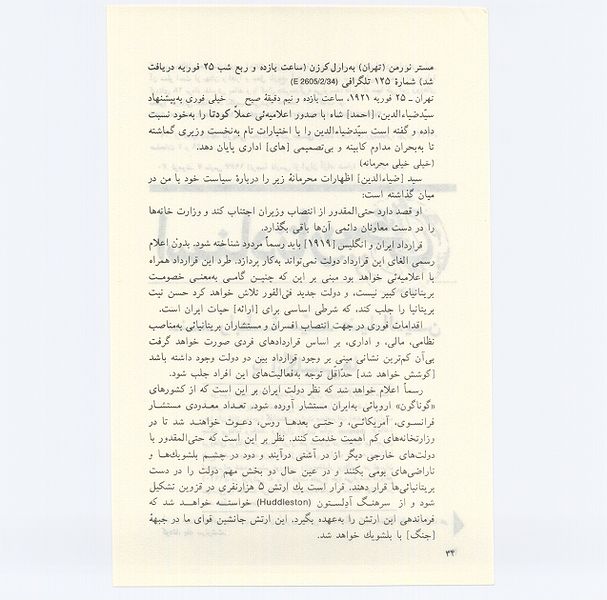 مستر نورمن (تهران) به‌ارل کرزن (ساعت یازده و ربع شب ۲۵ فوریه دریافت
شد) شمارهٔ ۱۲۵ تلگرافی (E 2605/2/34)
تهران ـ ۲۵ فوریه ۱۹۲۱، ساعت یازده و نیم دقیقهٔ صبح خیلی فوری به‌پیشنهاد
سیّدضیاءالدین، [احمد] شاه با صدور اعلامیه‌ئی عملاً کودتا را به‌خود نسبت
داده و گفته است سیّدضیاءالدین را با اختیارات تام به‌نخست وزیری گماشته
تا به‌بحران مداوم کابینه و بی‌تصمیمی [های] اداری پایان دهد.
(خیلی خیلی محرمانه)
سید [ضیاءالدین] اظهارات محرمانهٔ زیر را دربارهٔ سیاست خود با من در
میان گذاشته است:
او قصد دارد حتی‌المقدور از انتصاب وزیران اجتناب کند و وزارت خانه‌ها
را در دست معاونان دائمی آن‌ها باقی بگذارد.
قرارداد ایران و انگلیس [۱۹۱۹] باید رسماً مردود شناخته شود. بدون اعلام
رسمی الغای این قرارداد دولت نمی‌تواند به‌کار پردازد. طرد این قرارداد همراه
با اعلامیه‌ئی خواهد بود مبنی بر این که چنین گامی به‌معنی خصومت
بریتانیای کبیر نیست، و دولت جدید فی‌الفور تلاش خواهد کرد حسن نیت
بریتانیا را جلب کند، که شرطی اساسی برای [ارائه] حیات ایران است.
اقدامات فوری در جهت انتصاب افسران و مستشاران بریتانیائی به‌مناصب
نظامی، مالی، و اداری، بر اساس قراردادهای فردی صورت خواهد گرفت
بی‌آن کم‌ترین نشانی مبنی بر وجود قرارداد بین دو دولت وجود داشته باشد
[کوشش خواهد شد] حدّاقل توجه به‌فعالیت‌های این افراد جلب شود.
رسماً اعلام خواهد شد که نظر دولت ایران بر این است که از کشورهای
«گوناگون» اروپائی به‌ایران مستشار آورده شود. تعداد معدودی مستشار
فرانسوی، آمریکائی، و حتی بعدها روس، دعوت خواهند شد تا در
وزارتخانه‌های کم اهمیت خدمت کنند. نظر بر این است که حتی‌المقدور با
دولت‌های خارجی دیگر از در آشتی درآیند و دود در چشم بلشویک‌ها و
ناراضی‌های بومی بکنند و در عین حال دو بخش مهم دولت را در دست
بریتانیائی‌ها قرار دهند. قرار است یك ارتش ۵ هزارنفری در قزوین تشکیل
شود و از سرهنگ آدِلستون (Huddleston) خواسته خواهد شد که
فرماندهی این ارتش را به‌عهده بگیرد. این ارتش جانشین قوای ما در جبههٔ
[جنگ] با بلشویك خواهد شد.
۳۴